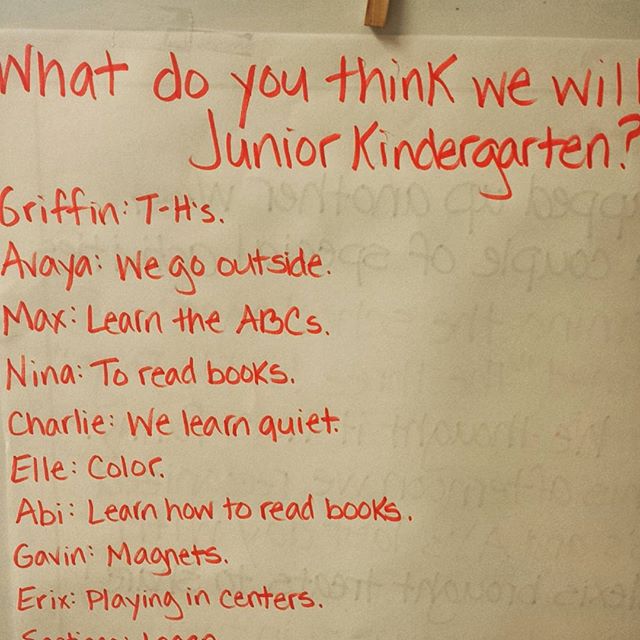 What do you think we will
Junior Kindergarten?
Griffin: T-H's.
Avaya: We go outside.
Max: Learn the ABCs.
Nina: To read books.
Charlie: We learn quiet.
Elle: Color.
Abi: Learn how to read books.
Gavin: Magnets.
Erix: Playing in centers.